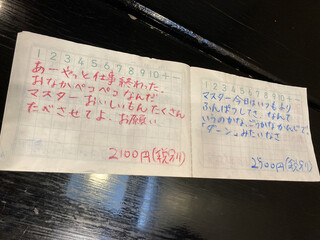 1 2 3 4 5 6 7 8 9 10 + -
あーやっと仕事終わった。
おなかペッペコなんだ
マスターおいしいもんたくさん
たべさせてよ。お願い。
2100円(税別)
1 2 3 4 5 6 7 8 9 10 + -
マスター今日はいつもより
ふんぱつしてさ、なんて
いうのかな、ごうかなかんじで
"ダーン"みたいなさ
2500円(税別)